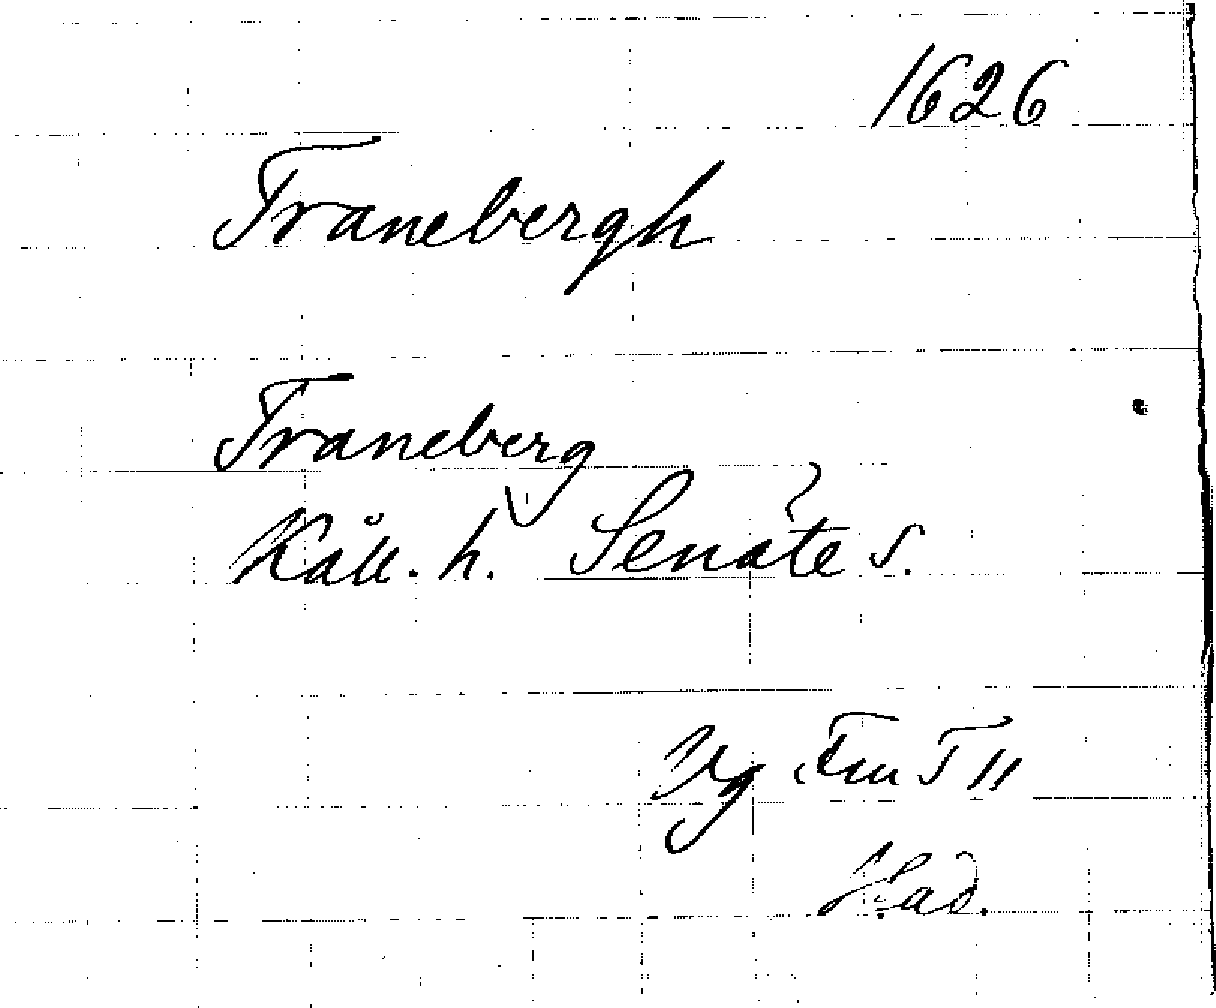 1626
Tranebergh
Traneberg
Kåll. h. Senäte s.
Vg Fm T 11
Had.